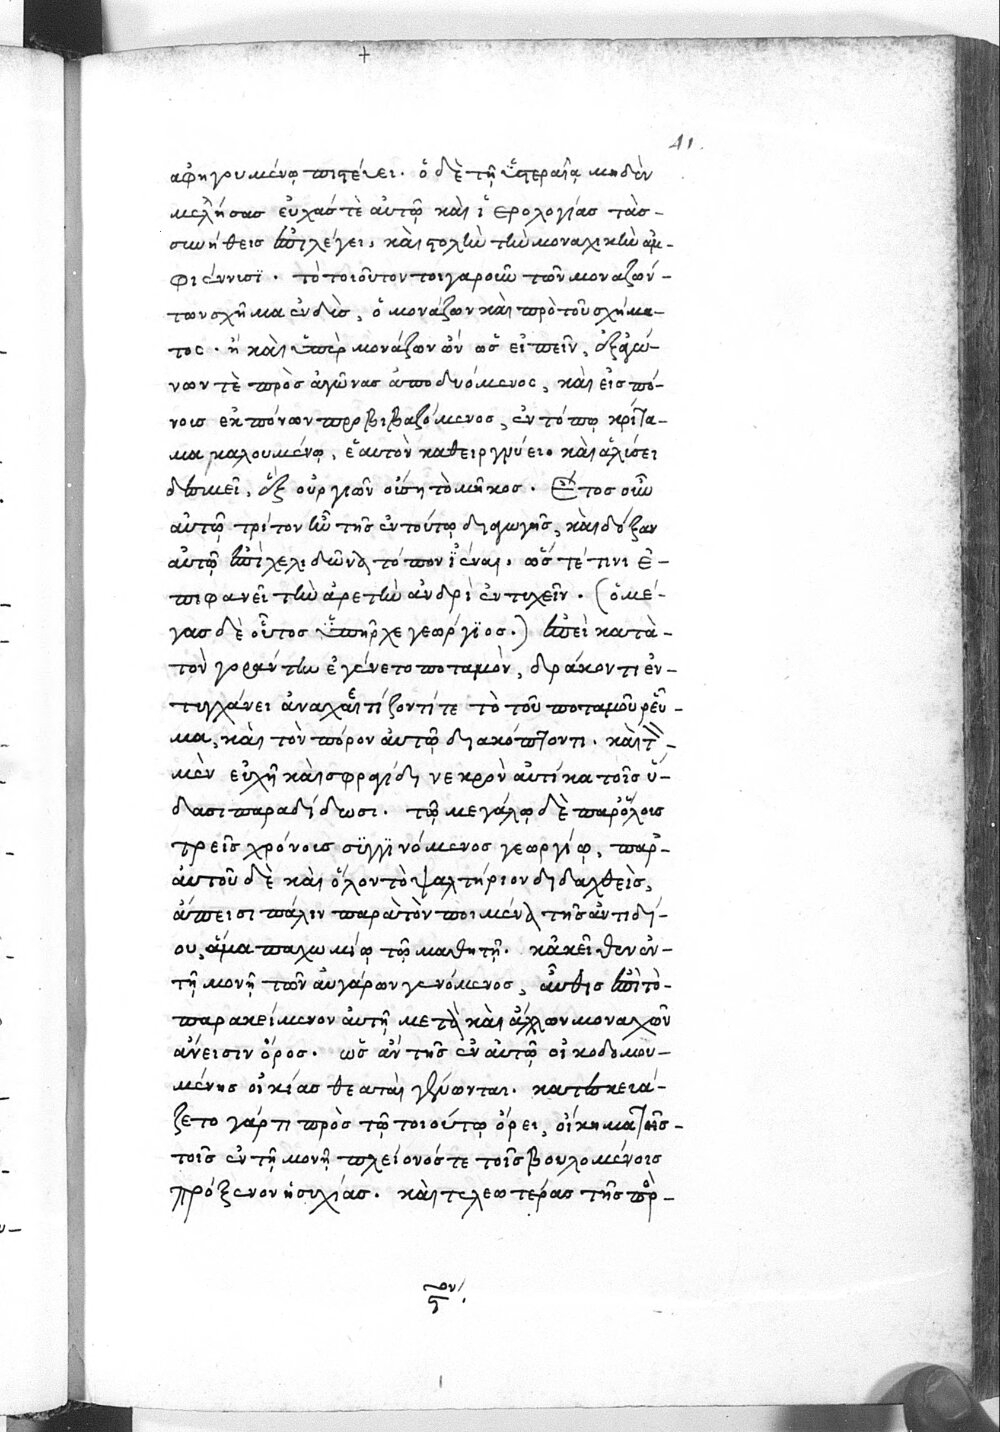 41.
ἀφηγουμένῳ πιστεύει. ὁ δὲ τῇ ὑστεραίᾳ μηδὲν
μελλήσας εὐχάς τὲ αὐτῷ καὶ ἱερολογίας τὰς
συνήθεις ἐπιλέγει, καὶ στολὴν τὴν μοναχικὴν ἀμ-
φιέννυσϊ. τὸ τοιοῦτον τοιγαροῦν τῶν μοναζόν-
των σχῆμα ἐνδὺς, ὁ μονάζων καὶ πρὸ τοῦ σχήμα-
τος. ἢ καὶ ὑπὲρ μονάζων ὢν ὡς εἰπεῖν, ἐξ ἀγώ-
νων τὲ πρὸς ἀγῶνας ἀποδυόμενος, καὶ εἰς πό-
νοις ἐκ πόνων προβιβαζόμενος, ἐν τόπῳ κρίτα-
μα καλουμένῳ, ἑαυτὸν καθειργνύει. καὶ ἁλύσει
δεσμεῖ, ἐξ οὐργιῶν οὔσῃ τὸ μῆκος. Ἔτος οὖν
αὐτῷ τρίτον ἦν τῆς ἐν τούτῳ διαγωγῆς, καὶ δόξαν
αὐτῷ ἐπὶ χελιδῶνα τόπον ἰέναι, ὥς τέ τινι ἐ-
πιφανεῖ τὴν ἀρετὴν ἀνδρὶ ἐντυχεῖν. (ὁ μέ-
γας δὲ οὗτος ὑπῆρχε γεώργϊος.) ἐπεὶ κατὰ
τὸν γοράντην ἐγένετο ποταμὸν, δράκοντι ἐν-
τυγχάνει ἀναχαιτίζοντί τε τὸ τοῦ ποταμοῦ ῥεῦ-
μα, καὶ τὸν πόρον αὐτῷ διακόπτοντι. καὶ τὸν
μὲν εὐχῇ καὶ σφραγίδι νεκρὸν αὐτίκα τοῖς ὕ-
δασι παραδίδωσι. τῷ μεγάλῳ δὲ παρ' ὅλοις
τρεῖς χρόνοις συγγϊνόμενος γεωργίῳ, παρ'
αὐτοῦ δὲ καὶ ὅλον τὸ ψαλτήριον διδαχθεὶς,
ἄπεισι πάλιν παρὰ τὸν ποιμένα τῆς ἀντιδί-
ου, ἅμα παχωμίῳ τῷ μαθητῇ. κἀκεῖθεν ἐν
τῇ μονῇ τῶν αὐγάρων γενόμενος, αὖθις ἐπὶ τὸ
παρακείμενον αὐτῇ μετὰ καὶ ἄλλων μοναχῶν
ἄνεισιν ὄρος. ὡς ἂν τῆς ἐν αὐτῷ οἰκοδομου-
μένης οἰκίας θεαταὶ γένωνται. κατεσκευά-
ζετο γάρ τι πρὸς τῷ τοιούτῳ ὄρει, οἴκημα τῆς
τοῖς ἐν τῇ μονῇ πλείονός τε τοῖς βουλομένοις
πρόξενον ἡσυχίας. καὶ τελεωτέρας τῆς πρ-